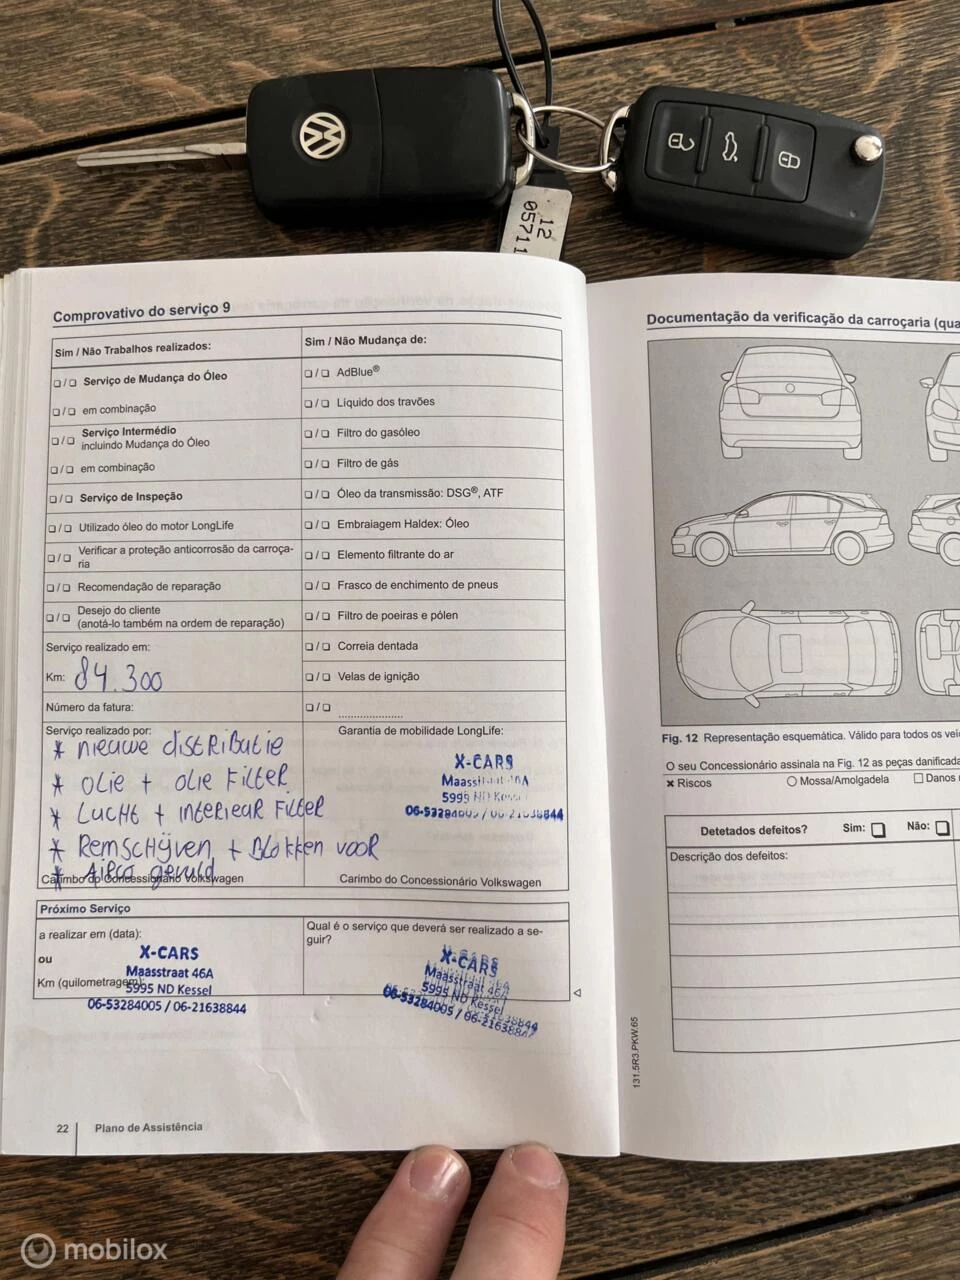 12
05711
Comprovativo do serviço 9
Sim / Não Trabalhos realizados:
❑ / ❑ Serviço de Mudança do Óleo
❑ / ❑ em combinação
❑ / ❑ Serviço Intermédio
incluindo Mudança do Óleo
❑ / ❑ em combinação
❑ / ❑ Serviço de Inspeção
❑ / ❑ Utilizado óleo do motor LongLife
❑ / ❑ Verificar a proteção anticorrosão da carroça-
ria
❑ / ❑ Recomendação de reparação
❑ / ❑ Desejo do cliente
(anotá-lo também na ordem de reparação)
Serviço realizado em:
Km: 84.300
Número da fatura:
Serviço realizado por:
* nieuwe distributie
* olie + olie Filter
* Lucht + interieur Filter
* Remschijven + Blokken voor
* Airco gevuld
Carimbo do Concessionário Volkswagen
Sim / Não Mudança de:
❑ / ❑ AdBlue®
❑ / ❑ Líquido dos travões
❑ / ❑ Filtro do gasóleo
❑ / ❑ Filtro de gás
❑ / ❑ Óleo da transmissão: DSG®, ATF
❑ / ❑ Embraiagem Haldex: Óleo
❑ / ❑ Elemento filtrante do ar
❑ / ❑ Frasco de enchimento de pneus
❑ / ❑ Filtro de poeiras e pólen
❑ / ❑ Correia dentada
❑ / ❑ Velas de ignição
❑ / ❑ ....................
Garantia de mobilidade LongLife:
X-CARS
Maasstraat 46A
5995 ND Kessel
06-53284005 / 06-21638844
Carimbo do Concessionário Volkswagen
Próximo Serviço
a realizar em (data):
ou
Km (quilometragem):
X-CARS
Maasstraat 46A
5995 ND Kessel
06-53284005 / 06-21638844
Qual é o serviço que deverá ser realizado a se-
guir?
X-CARS
Maasstraat 46A
5995 ND Kessel
06-53284005 / 06-21638844
22 Plano de Assistência
Documentação da verificação da carroçaria (qua
Fig. 12 Representação esquemática. Válido para todos os veí
O seu Concessionário assinala na Fig. 12 as peças danificada
× Riscos ○ Mossa/Amolgadela ❑ Danos
Detetados defeitos? Sim: ❑ Não: ❑
Descrição dos defeitos:
131.5R3.PKW.65
mobilox